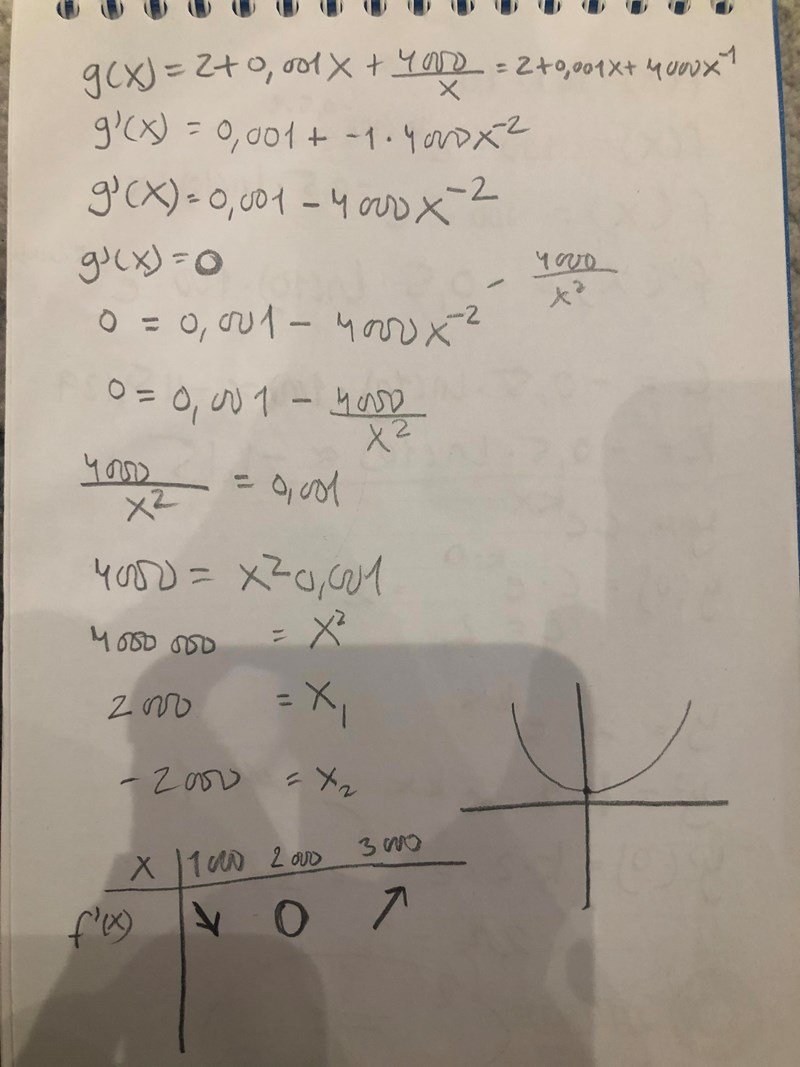 g(x) = 2 + 0,001x + 4000/x = 2+0,001x + 4000x⁻¹
g'(x) = 0,001 + -1 · 4000x⁻²
g'(x) = 0,001 - 4000x⁻²
g'(x) = 0
- 4000/x²
0 = 0,001 - 4000x⁻²
0 = 0,001 - 4000/x²
4000/x² = 0,001
4000 = x²0,001
4000 000 = x²
2000 = x₁
-2000 = x₂
x | 1000 2000 3000
f'(x) ↘ 0 ↗